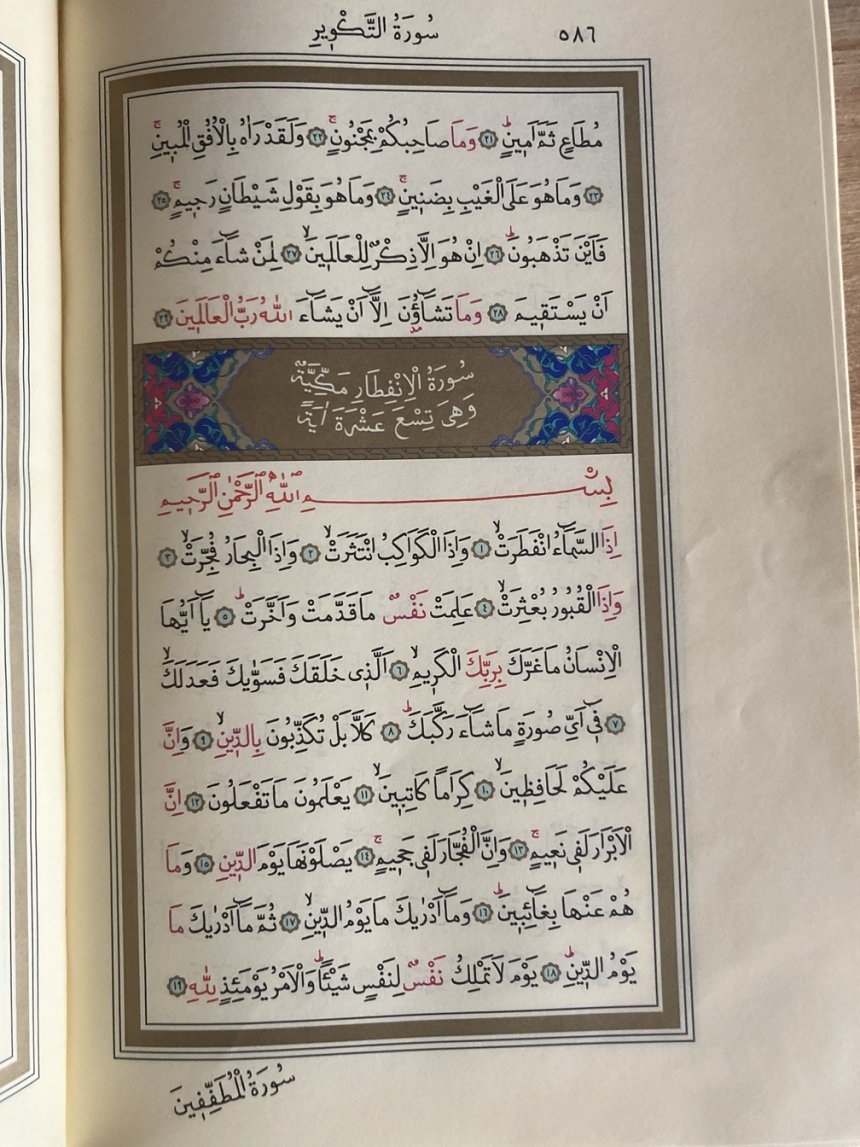 سُورَةُ التَّكْوِيرِ ٥٨٦
مُطَاعٍ ثَمَّ اَمِينٍۜ ﴿٢١﴾ وَمَا صَاحِبُكُمْ بِمَجْنُونٍۚ ﴿٢٢﴾ وَلَقَدْ رَاٰهُ بِالْاُفُقِ الْمُبِينِۚ
﴿٢٣﴾ وَمَا هُوَ عَلَى الْغَيْبِ بِضَنِينٍۚ ﴿٢٤﴾ وَمَا هُوَ بِقَوْلِ شَيْطَانٍ رَجِيمٍۚ ﴿٢٥﴾
فَاَيْنَ تَذْهَبُونَۜ ﴿٢٦﴾ اِنْ هُوَ اِلَّا ذِكْرٌ لِلْعَالَمِينَۙ ﴿٢٧﴾ لِمَنْ شَٓاءَ مِنْكُمْ
اَنْ يَسْتَقِيمَ ﴿٢٨﴾ وَمَا تَشَٓاؤُ۫نَ اِلَّٓا اَنْ يَشَٓاءَ اللّٰهُ رَبُّ الْعَالَمِينَ ﴿٢٩﴾
سُورَةُ الْاِنْفِطَارِ مَكِّيَّةٌ
وَهِيَ تِسْعَ عَشْرَةَ اٰيَةً
بِسْمِ اللّٰهِ الرَّحْمٰنِ الرَّحِيمِ
اِذَا السَّمَٓاءُ انْفَطَرَتْۙ ﴿١﴾ وَاِذَا الْكَوَاكِبُ انْتَثَرَتْۙ ﴿٢﴾ وَاِذَا الْبِحَارُ فُجِّرَتْۙ ﴿٣﴾
وَاِذَا الْقُبُورُ بُعْثِرَتْۙ ﴿٤﴾ عَلِمَتْ نَفْسٌ مَا قَدَّمَتْ وَاَخَّرَتْۜ ﴿٥﴾ يَٓا اَيُّهَا
الْاِنْسَانُ مَا غَرَّكَ بِرَبِّكَ الْكَرِيمِۙ ﴿٦﴾ اَلَّذِي خَلَقَكَ فَسَوّٰيكَ فَعَدَلَكَۙ
﴿٧﴾ فِٓي اَيِّ صُورَةٍ مَا شَٓاءَ رَكَّبَكَۜ ﴿٨﴾ كَلَّا بَلْ تُكَذِّبُونَ بِالدِّينِۙ ﴿٩﴾ وَاِنَّ
عَلَيْكُمْ لَحَافِظِينَۙ ﴿١٠﴾ كِرَاماً كَاتِبِينَۙ ﴿١١﴾ يَعْلَمُونَ مَا تَفْعَلُونَ ﴿١٢﴾ اِنَّ
الْاَبْرَارَ لَفِي نَعِيمٍۚ ﴿١٣﴾ وَاِنَّ الْفُجَّارَ لَفِي جَحِيمٍۚ ﴿١٤﴾ يَصْلَوْنَهَا يَوْمَ الدِّينِ ﴿١٥﴾ وَمَا
هُمْ عَنْهَا بِغَٓائِبِينَۜ ﴿١٦﴾ وَمَٓا اَدْرٰيكَ مَا يَوْمُ الدِّينِۙ ﴿١٧﴾ ثُمَّ مَٓا اَدْرٰيكَ مَا
يَوْمُ الدِّينِۜ ﴿١٨﴾ يَوْمَ لَا تَمْلِكُ نَفْسٌ لِنَفْسٍ شَيْـٔاًۜ وَالْاَمْرُ يَوْمَئِذٍ لِلّٰهِ ﴿١٩﴾
سُورَةُ الْمُطَفِّفِينَ